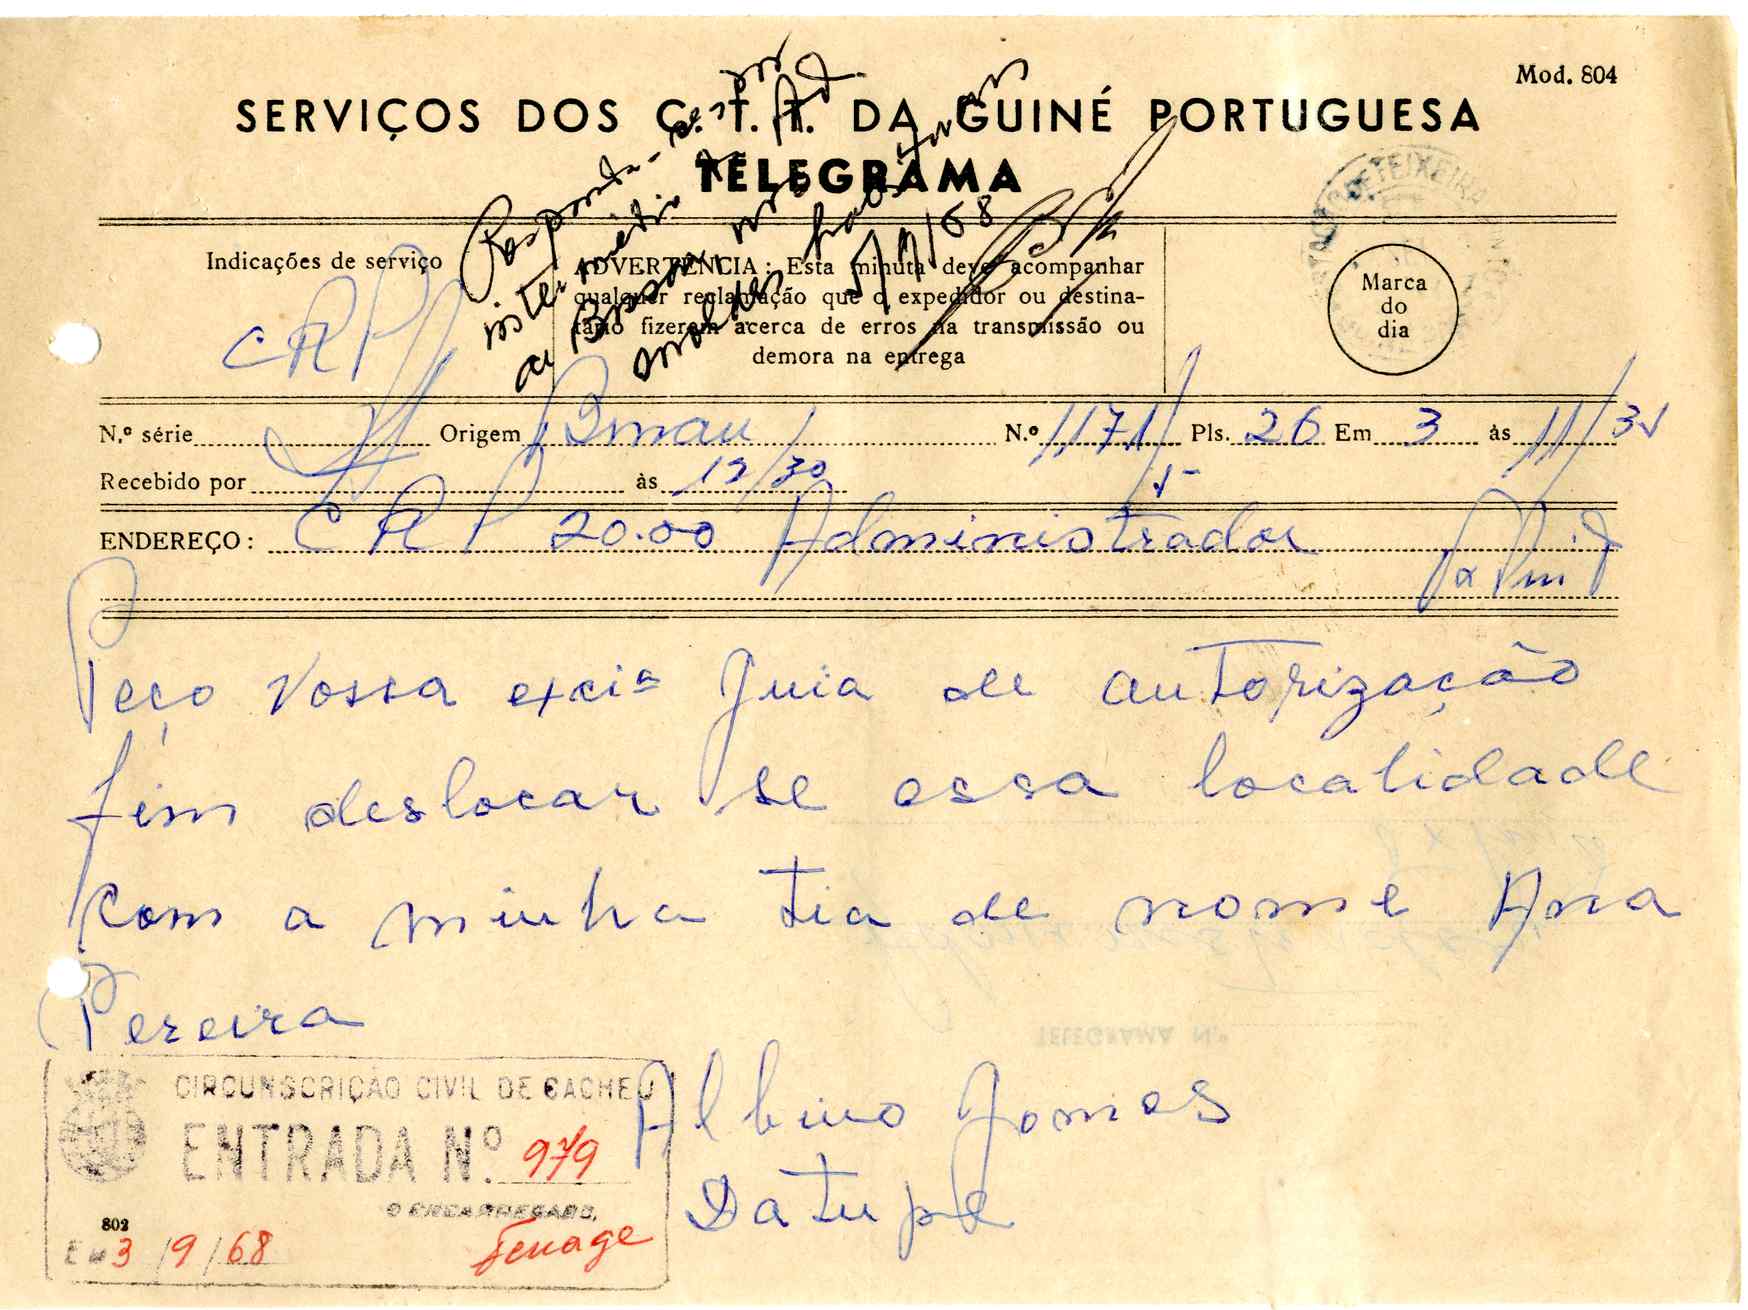 Mod. 804
SERVIÇOS DOS C. T. T. DA GUINÉ PORTUGUESA
TELEGRAMA
Indicações de serviço
CRP
Resposta
5/9/68
ADVERTÊNCIA: Esta minuta deve acompanhar
qualquer reclamação que o expedidor ou destina-
tário fizerem acerca de erros na transmissão ou
demora na entrega
TEIXEIRA
Marca
do
dia
N.º série Origem Bissau N.º 1171 Pls. 26 Em 3 às 11/35
Recebido por às 12/30
ENDEREÇO: CRP 20.00 Administrador
Peço Vossa excia Guia de autorização
fim deslocar se essa localidade
com a minha tia de nome Ana
Pereira
Albino Gomes
CIRCUNSCRIÇÃO CIVIL DE CACHEU
ENTRADA N.º 979
O ENCARREGADO,
802
Em 3/9/68
TELEGRAMA N.º